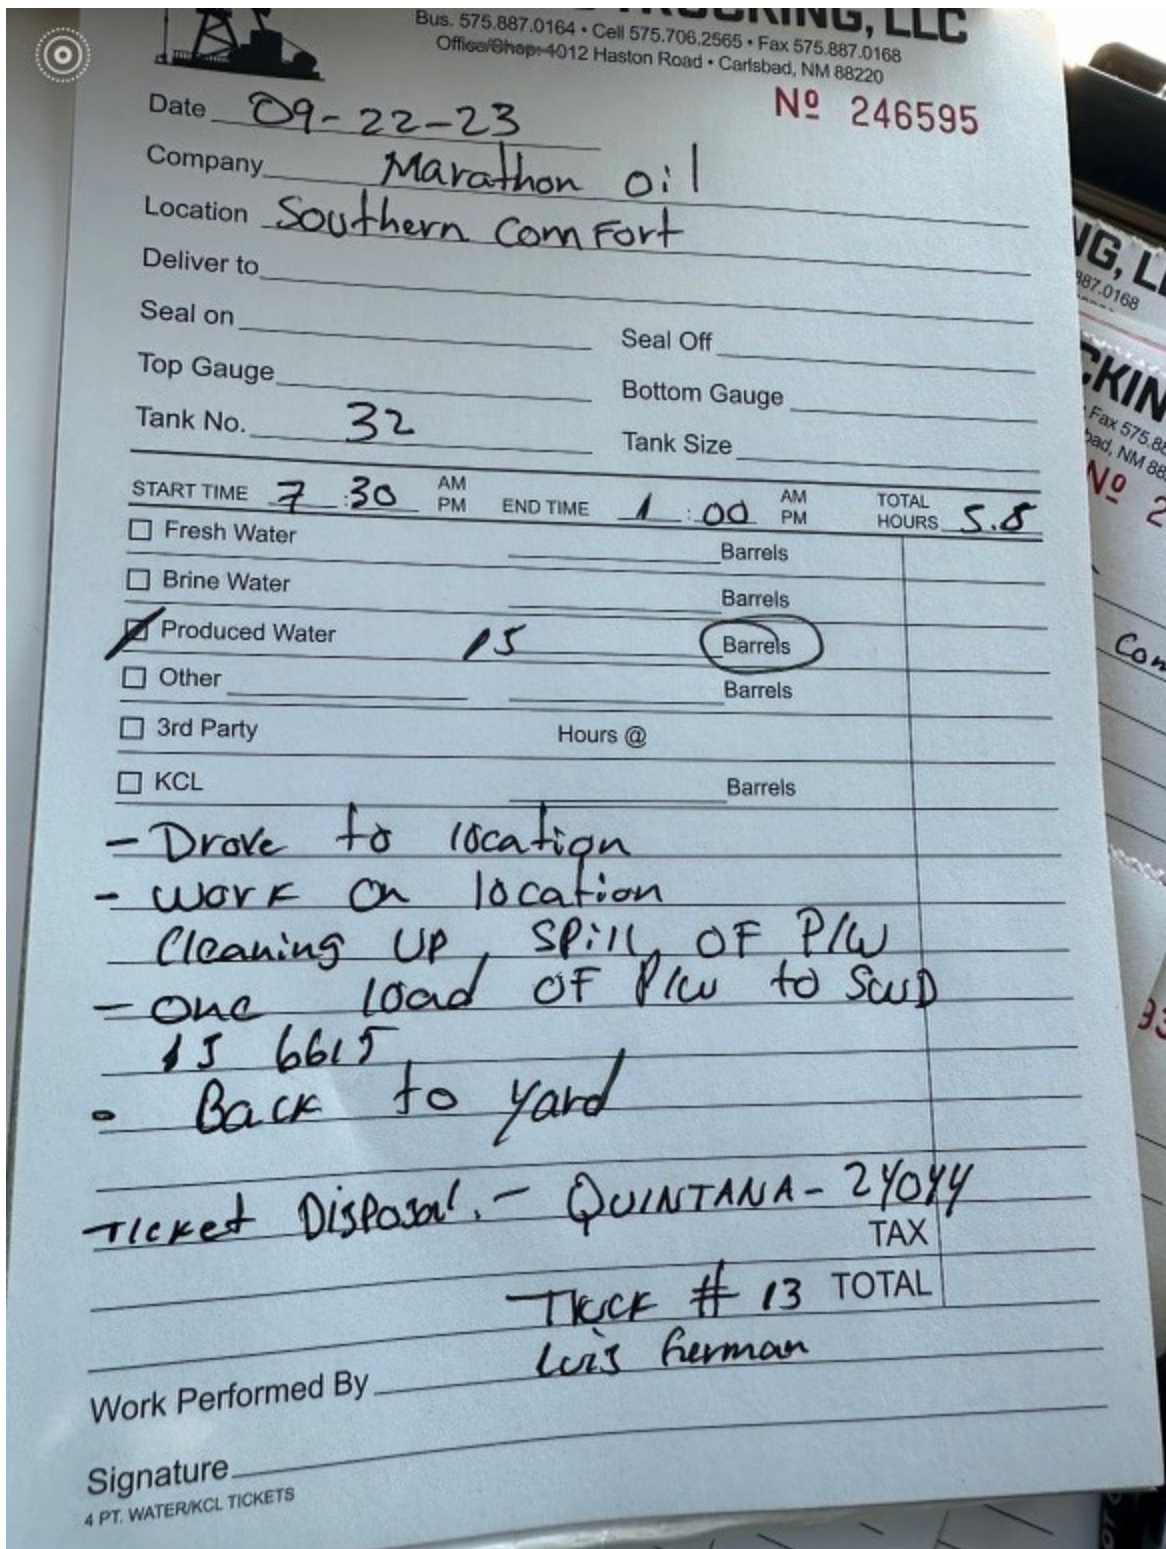 TRUCKING, LLC
Bus. 575.887.0164 • Cell 575.706.2565 • Fax 575.887.0168
Office/Shop: 4012 Haston Road • Carlsbad, NM 88220
Nº 246595
Date 09-22-23
Company Marathon oil
Location Southern Comfort
Deliver to
Seal on Seal Off
Top Gauge Bottom Gauge
Tank No. 32 Tank Size
START TIME 7:30 AM PM END TIME 1:00 AM PM TOTAL HOURS 5.5
Fresh Water Barrels
Brine Water Barrels
Produced Water 15 Barrels
Other Barrels
3rd Party Hours @
KCL Barrels
- Drove to location
- Work on location
Cleaning UP, Spill, OF P/W
- One load OF P/W to SWD
15 6615
• Back to yard
Ticket Disposal. - QUINTANA - 24044
TAX
Truck # 13 TOTAL
Luis German
Work Performed By
Signature
4 PT. WATER/KCL TICKETS
NG, LL
887.0168
CKIN
Fax 575.88
bad, NM 88
Nº 2
Com
93